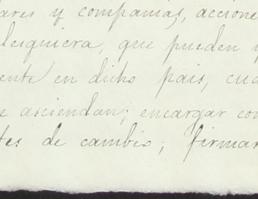 ares y compañias, accione
lesquiera, que pueden y
ente en dicho pais, cua
e asciendan; encargar con
tes de cambio; firmar